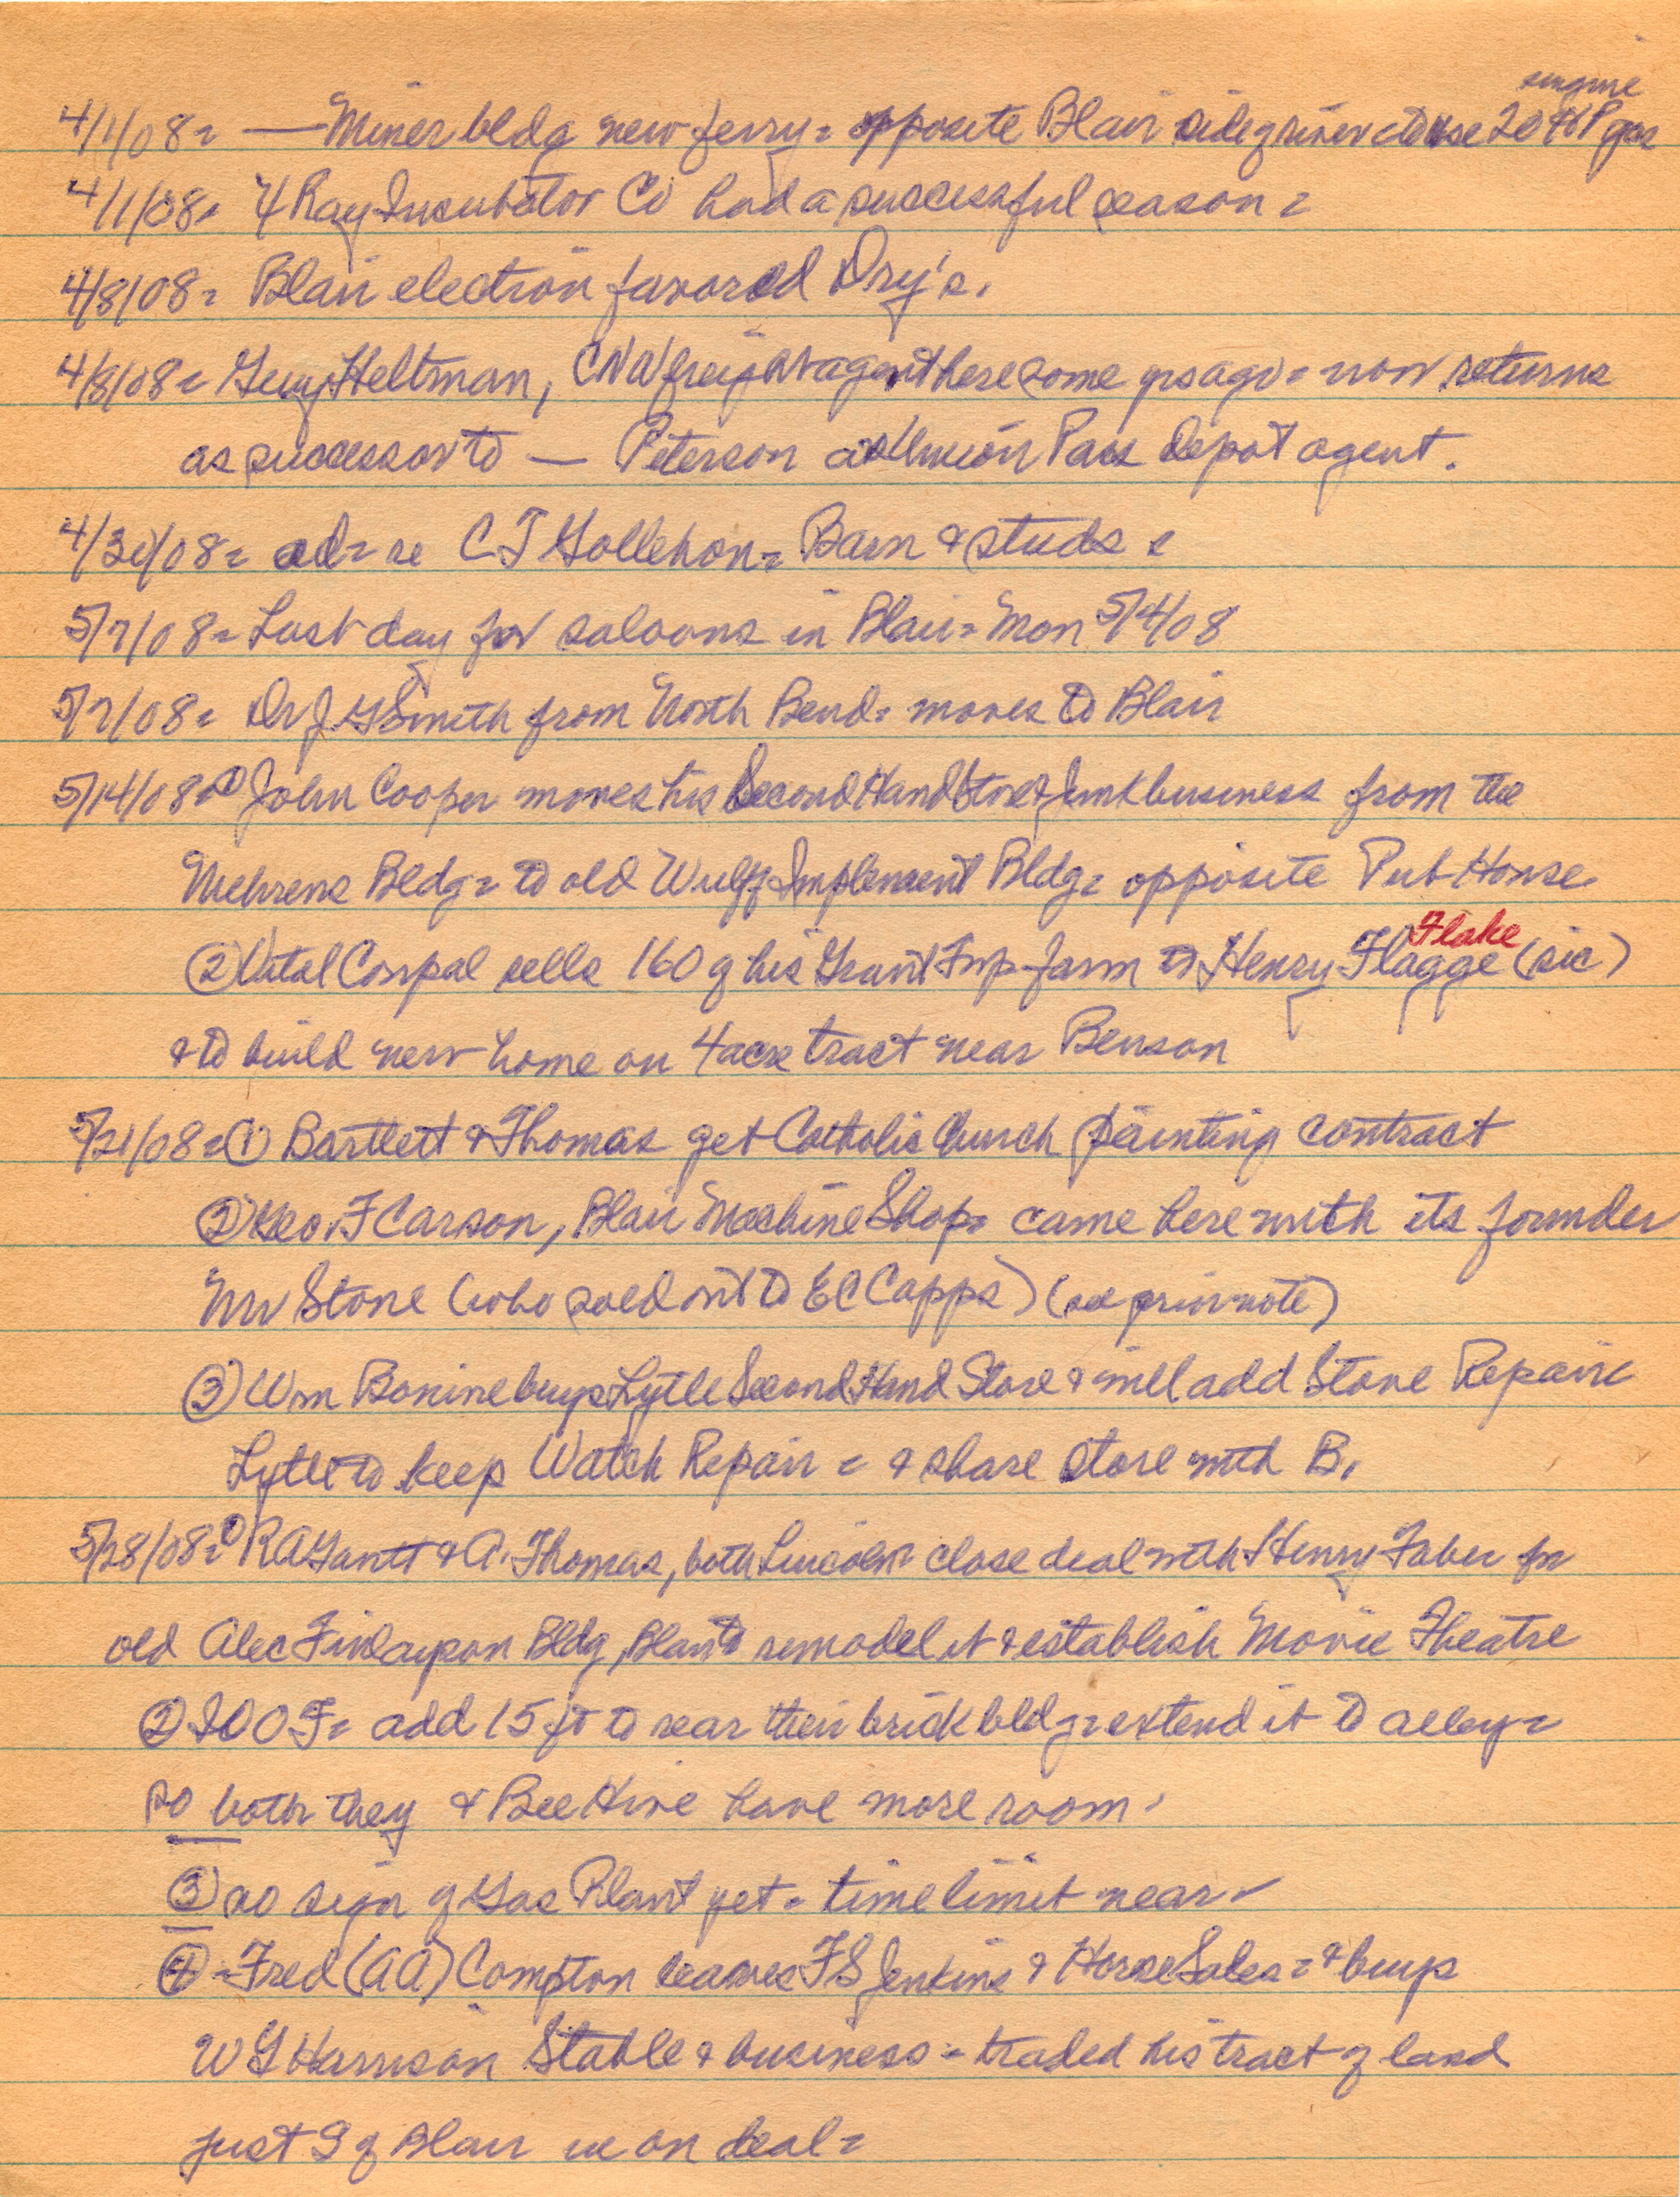 engine
4/1/08= — Miner bldg new ferry= opposite Blair side of river to use 20 HP gas
4/1/08= X Ray Incubator Co had a successful season=
4/8/08= Blair election favored Dry's.
4/8/08= Guy Heltman, CNW freight agent here some yrs ago= now returns
as successor to — Peterson as Union Pass Depot agent.
4/30/08= ad= re C T Gollehon= Barn & studs
5/7/08= Last day for saloons in Blair= Mon 5/4/08
5/7/08= Dr J G Smith from North Bend= moves to Blair
5/14/08= ① John Cooper moves his Second Hand Store & Junk business from the
Mehrens Bldg= to old Wulff Implement Bldg= opposite Pub House
Flake
② Vital Compal sells 160 of his Grant Twp farm to Henry Flagge (sic)
& to build new home on 4 acre tract near Benson
5/21/08= ① Bartlett & Thomas get Catholic Church painting contract
② Geo. F Carson, Blair Machine Shop= came here with its founder
Mr Stone (who sold out to E C Capps) (see prior note)
③ Wm Bonine buys Lytle Second Hand Store & will add Stove Repair
Lytle to keep Watch Repair = & share store with B.
5/28/08= ① R A Gantt & A. Thomas, both Lincoln= close deal with Henry Faber for
old Alec Finlayson Bldg, Plan to remodel it & establish Movie Theatre
② IOOF= add 15 ft to rear their brick bldg= extend it to alley=
so both they & Bee Hive have more room.
③ no sign of Gas Plant yet= time limit near
④ = Fred (AA) Compton leaves F S Jenkins & Horse Sales= & buys
W G Harrison Stable & business= traded his tract of land
just S of Blair in on deal=